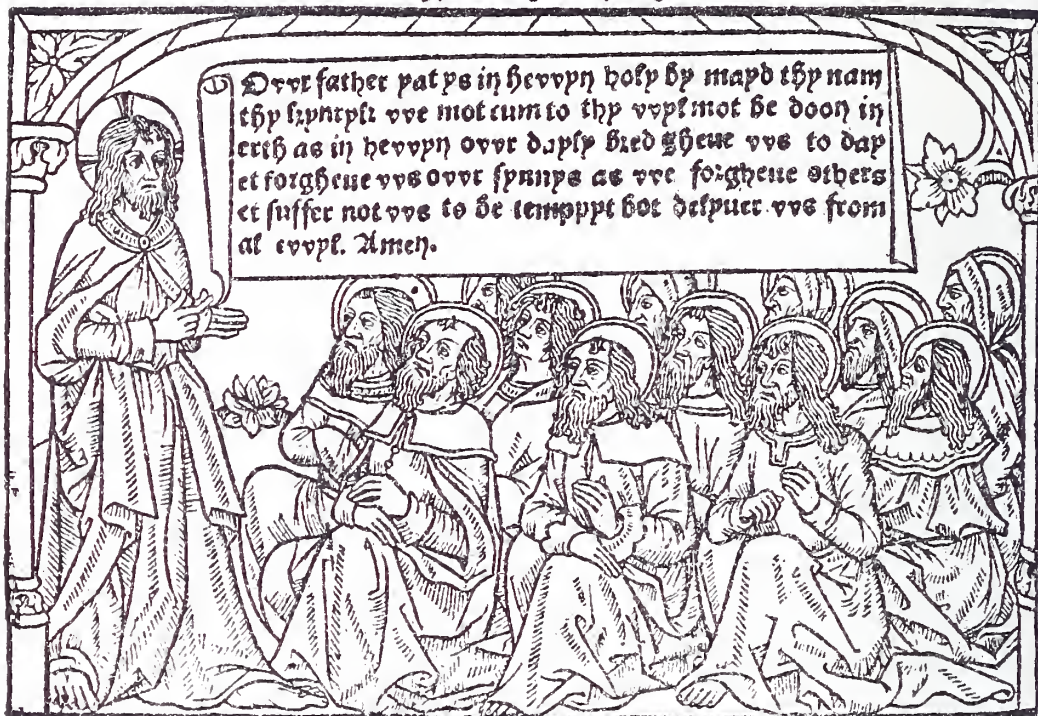 Ovvr father yat ys in hevvyn holy by mayd thy nam
thy kyngtyk vve mot cum to thy vvyl mot be doon in
erth as in hevvyn ovvr dayly bred gheue vvs to day
et forgheue vvs ovvr synnys as vve forgheue others
et suffer not vvs to be temppyt bot delyuer vvs from
al evvyl. Amen.